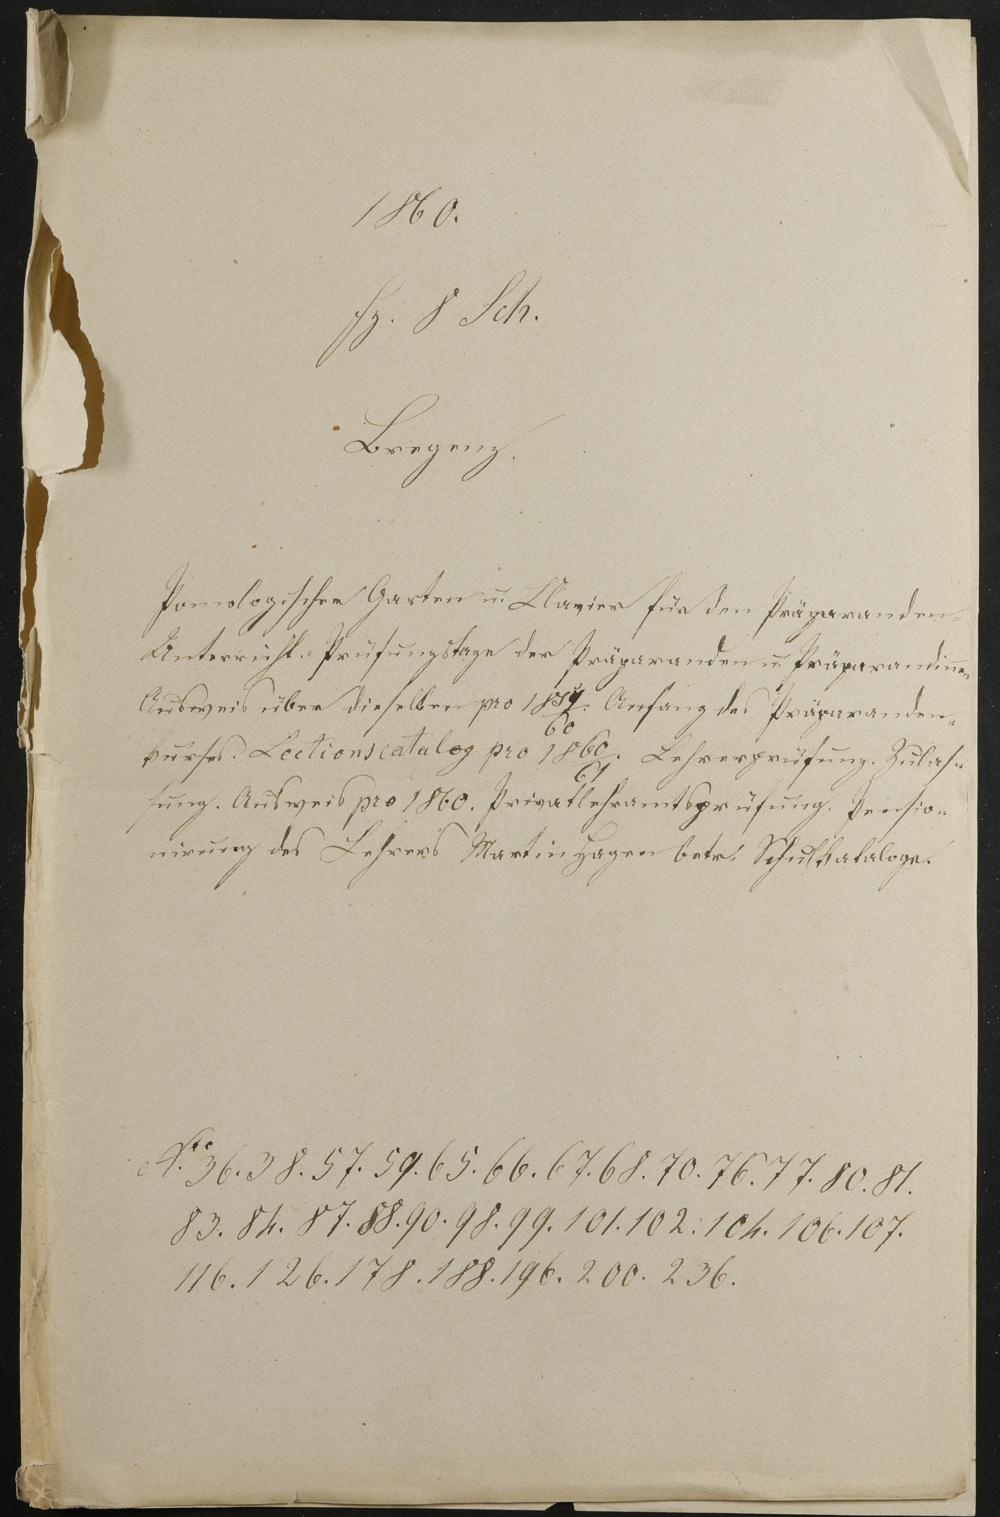 1860.
Fz. 8 Sch.
Bregenz.
Pomologischer Garten u. Clavier für den Präparanden-
Unterricht. Prüfungstage der Präparanden u. Präparandinen
Ausweis über dieselben pro 1859/60. Anfang des Präparanden-
kurses. Lectionscatalog pro 1860/61. Lehrerprüfung. Zulas-
sung. Ausweis pro 1860. Privatlehramtsprüfung. Pensio-
nirung des Lehrers Martin Hagen betr. Schulkataloge.
Nro 36. 38. 57. 59. 65. 66. 67. 68. 70. 76. 77. 80. 81.
83. 84. 87. 88. 90. 98. 99. 101. 102. 104. 106. 107.
116. 126. 178. 188. 196. 200. 236.